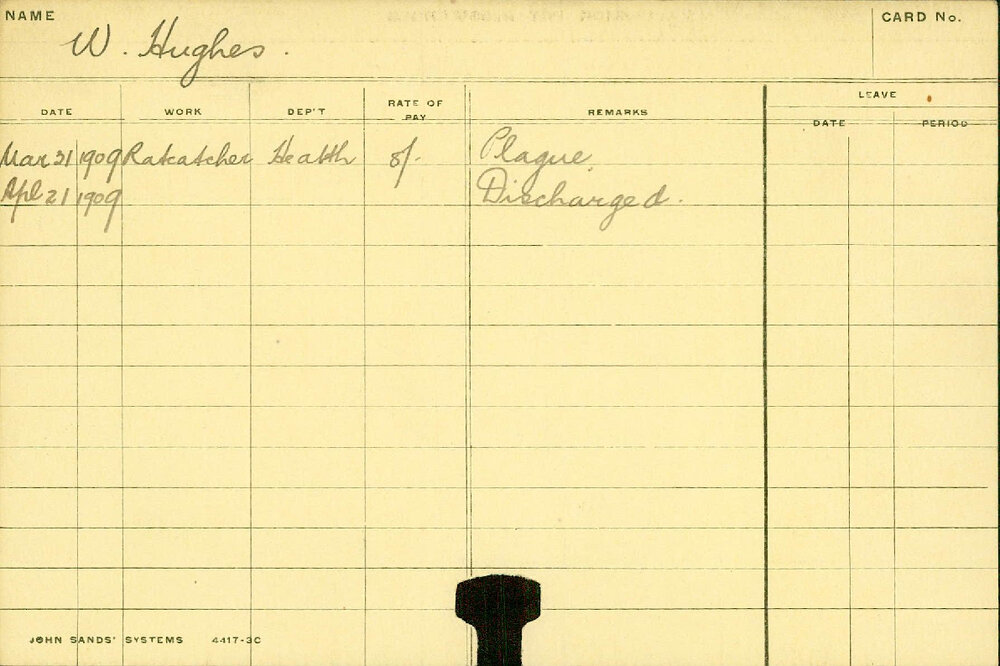 NAME
CARD No.
W. Hughes.
DATE WORK DEP'T RATE OF PAY REMARKS LEAVE
DATE PERIOD
Mar 31 1909 Ratcatcher Health 8/- Plague
Apl 21 1909 Discharged.
JOHN SANDS' SYSTEMS 4417-3C